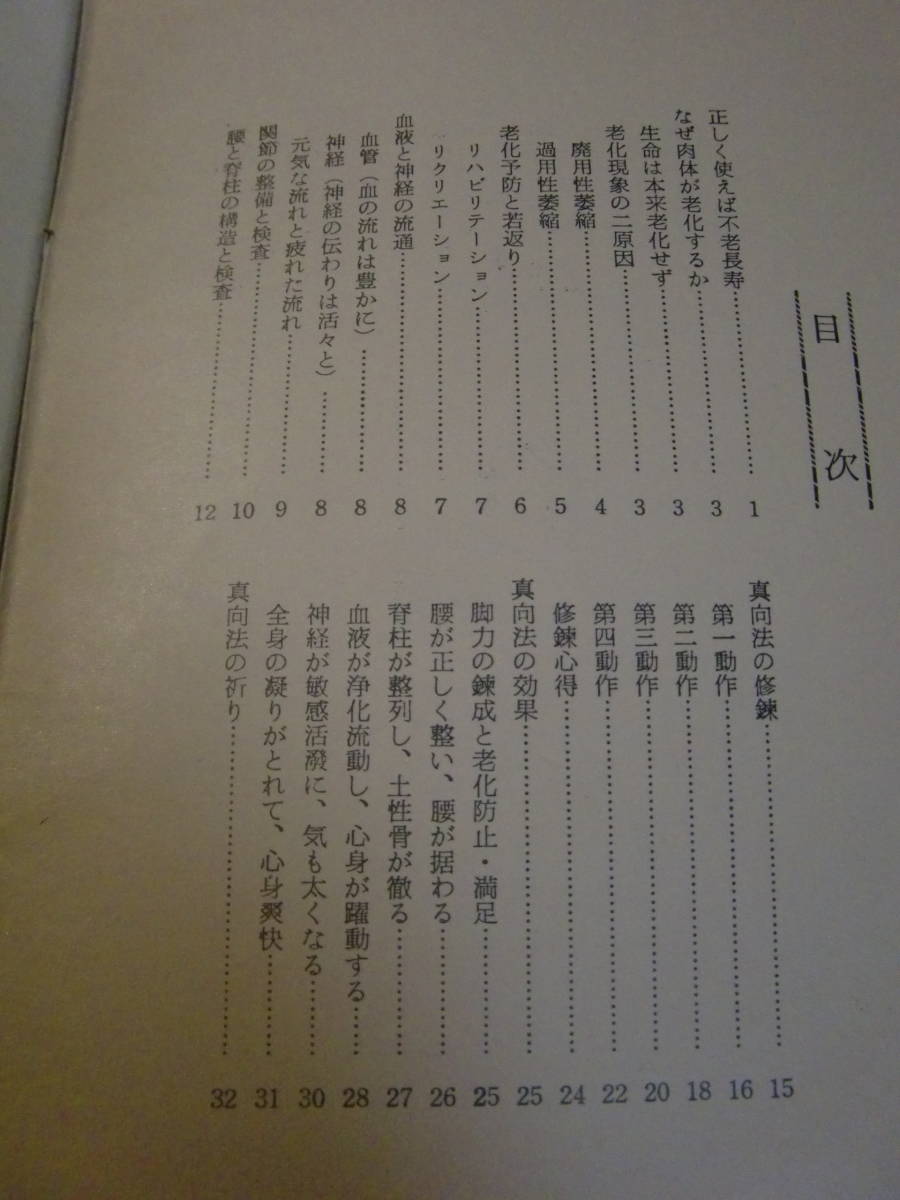 目次
正しく使えば不老長寿……………………1
なぜ肉体が老化するか……………………3
生命は本来老化せず……………………3
老化現象の二原因……………………3
廃用性萎縮……………………4
過用性萎縮……………………5
老化予防と若返り……………………6
リハビリテーション……………………7
リクリエーション……………………7
血液と神経の流通……………………8
血管（血の流れは豊かに）……………………8
神経（神経の伝わりは活々と）……………………8
元気な流れと疲れた流れ……………………9
関節の整備と検査……………………10
腰と脊柱の構造と検査……………………12
真向法の修錬……………………15
第一動作……………………16
第二動作……………………18
第三動作……………………20
第四動作……………………22
修錬心得……………………24
真向法の効果……………………25
脚力の錬成と老化防止・満足……………………25
腰が正しく整い、腰が据わる……………………26
脊柱が整列し、土性骨が徹る……………………27
血液が浄化流動し、心身が躍動する……………………28
神経が敏感活潑に、気も太くなる……………………30
全身の凝りがとれて、心身爽快……………………31
真向法の祈り……………………32